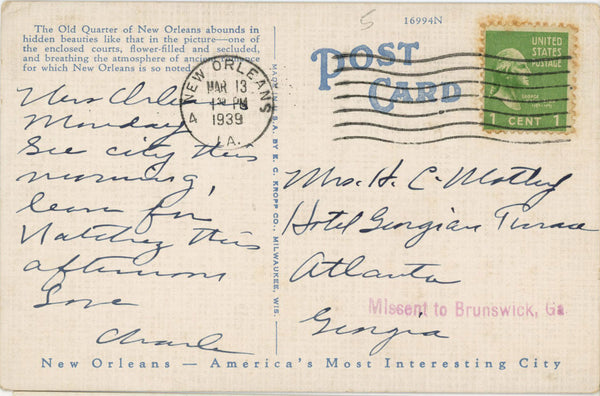 The Old Quarter of New Orleans abounds in
hidden beauties like that in the picture—one of
the enclosed courts, flower-filled and secluded,
and breathing the atmosphere of ancient
for which New Orleans is so noted.
5
16994N
POST
CARD
UNITED
STATES
POSTAGE
1 CENT 1
NEW ORLEANS
MAR 13
PM
1939
LA.
4
MADE IN U.S.A. BY E. C. KROPP CO., MILWAUKEE, WIS.
New Orleans
Monday
See city this
morning,
leave for
Natchez this
afternoon
Love
Charlie
Mrs. H. C. Motley
Hotel Georgian Terrace
Atlanta
Georgia
Missent to Brunswick, Ga
New Orleans — America's Most Interesting City